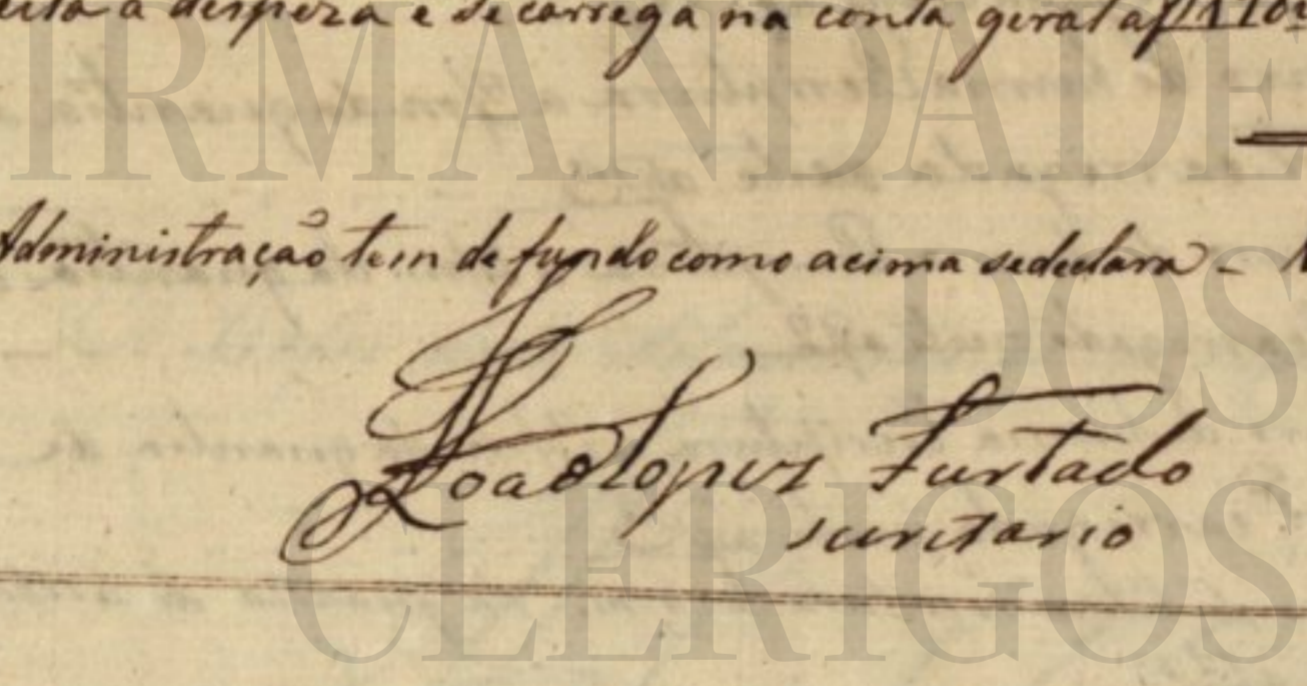 a despeza e se carrega na conta geral af
Administração tem de fundo como acima sedeclara -
João Lopez Furtado
secretario
IRMANDADE
DOS
CLERIGOS